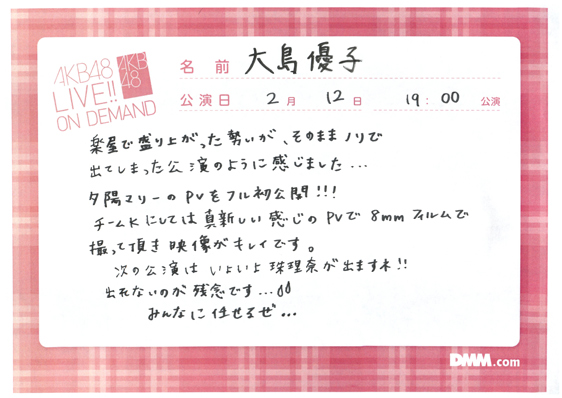 AKB48
LIVE!!
ON DEMAND
AKB
48
名前 大島優子
公演日 2月 12日 19:00 公演
楽屋で盛り上がった勢いが、そのままノリで
出てしまった公演のように感じました...
夕陽マリーのPVをフル初公開!!!
チームKにしては真新しい感じのPVで8mmフィルムで
撮って頂き映像がキレイです。
次の公演はいよいよ珠理奈が出ますネ!!
出れないのが残念です...
みんなに任せるぜ...
DMM.com